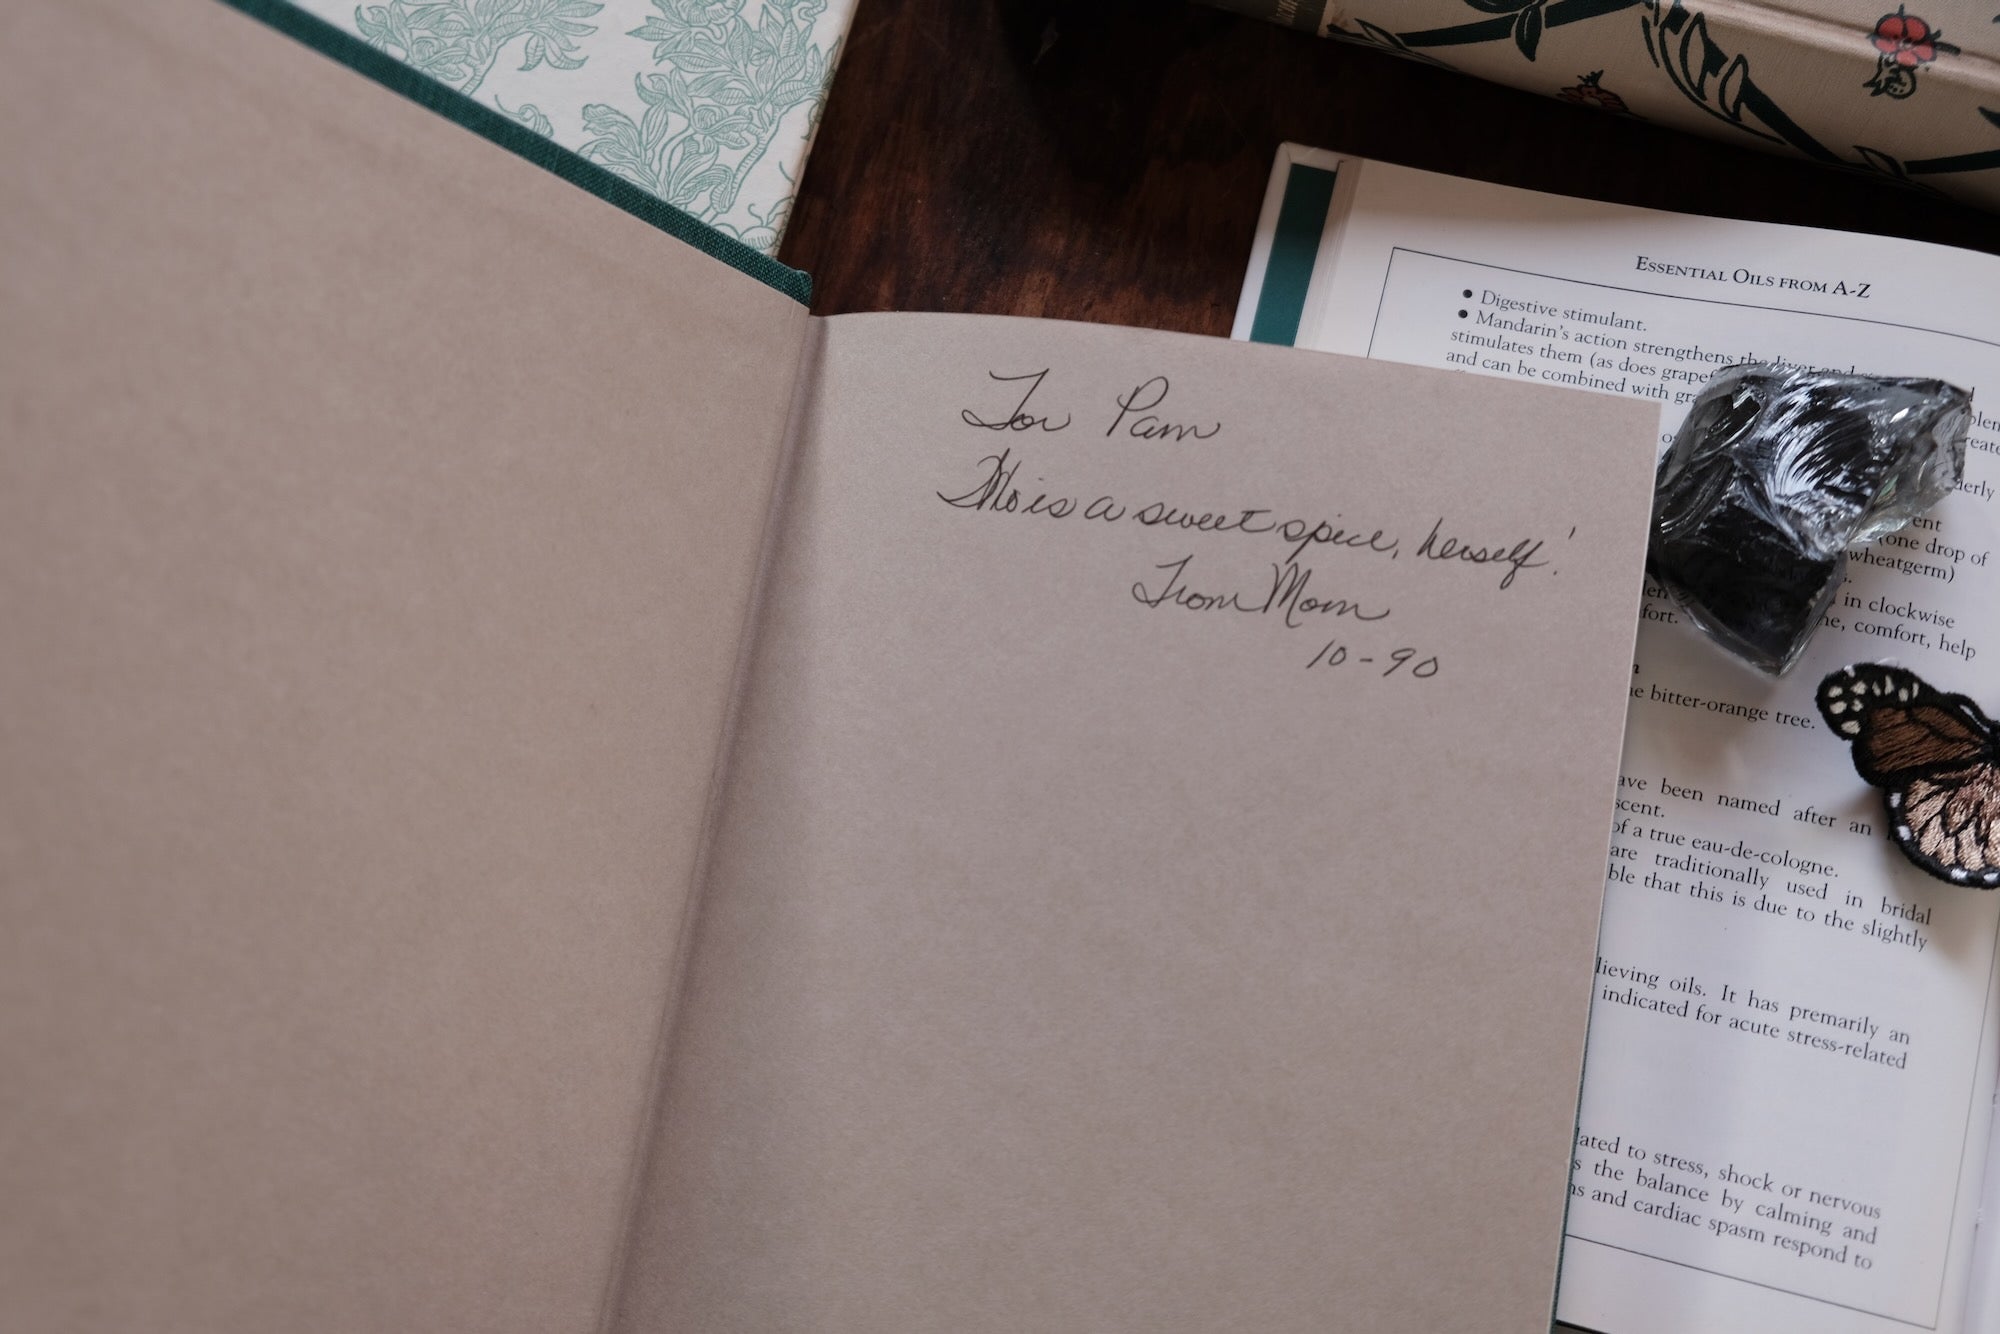 For Pam
Who is a sweet spice, herself!
From Mom
10-90
ESSENTIAL OILS FROM A-Z
• Digestive stimulant.
• Mandarin's action strengthens the liver and
stimulates them (as does
and can be combined with
ent
(one drop of
wheatgerm)
in clockwise
fort. comfort, help
bitter-orange tree.
been named after an
scent.
of a true eau-de-cologne.
are traditionally used in bridal
that this is due to the slightly
oils. It has premarily an
indicated for acute stress-related
to stress, shock or nervous
the balance by calming and
and cardiac spasm respond to